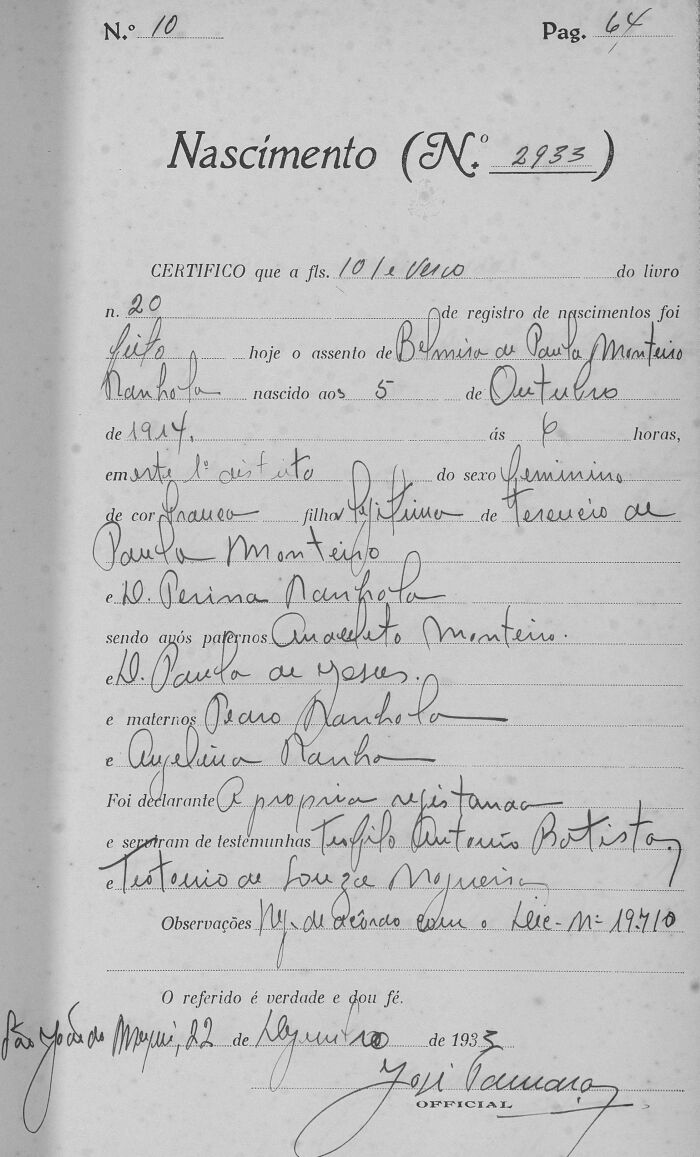 N.º 10 Pag. 64
Nascimento (N.º 2933)
CERTIFICO que a fls. 101 e verso do livro
n. 20 de registro de nascimentos foi
feito hoje o assento de Belmira de Paula Monteiro
Nanhola nascido aos 5 de Outubro
de 1914, ás 6 horas,
em este 1º distrito do sexo feminino
de cor branca filha legitima de Terencio de
Paula Monteiro
e D. Perina Nanhola
sendo avós paternos Anacleto Monteiro.
e D. Paula de Jesus.
e maternos Pedro Nanhola
e Angelina Nanhola
Foi declarante A propria registanda
e serviram de testemunhas Teofilo Antonio Batista,
e Teotonio de Souza Nogueira
Observações Reg. de acôrdo com o Dec. Nº 19.710
O referido é verdade e dou fé.
São João de Meriti, 22 de Dezembro de 1933
José
OFFICIAL